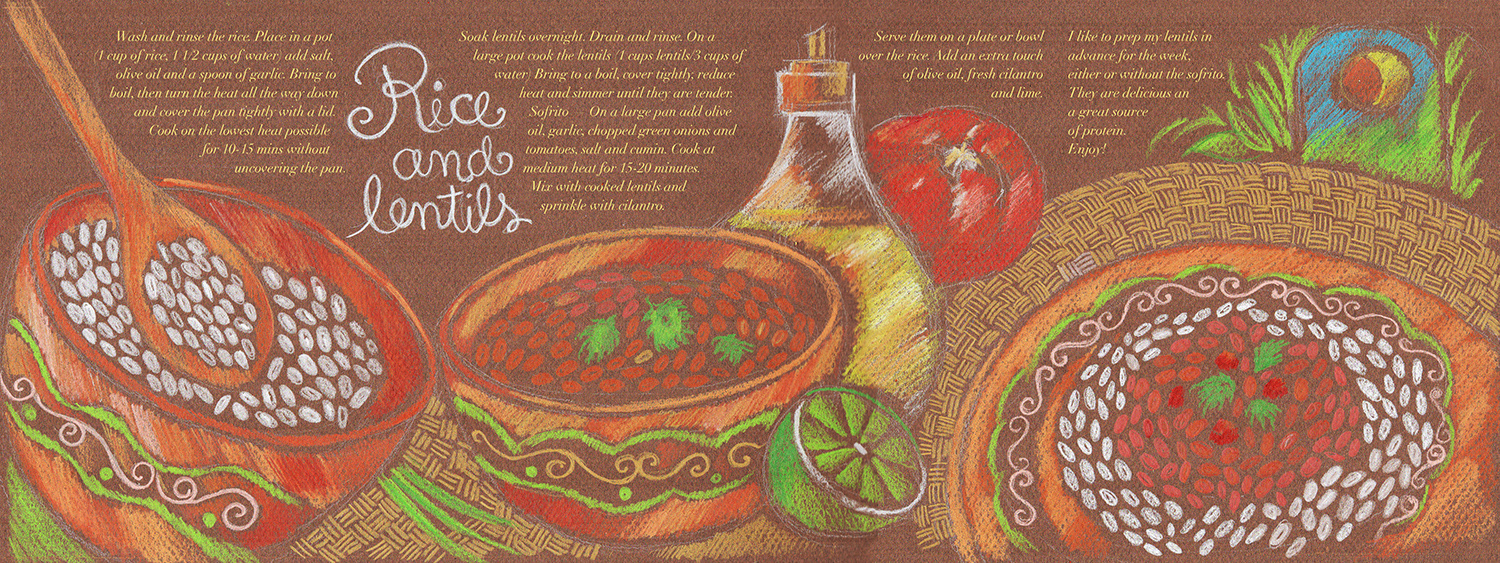 Wash and rinse the rice. Place in a pot
(1 cup of rice, 1 1/2 cups of water) add salt,
olive oil and a spoon of garlic. Bring to
boil, then turn the heat all the way down
and cover the pan tightly with a lid.
Cook on the lowest heat possible
for 10-15 mins without
uncovering the pan.
Rice
and
lentils
Soak lentils overnight. Drain and rinse. On a
large pot cook the lentils (1 cups lentils/3 cups of
water) Bring to a boil, cover tightly, reduce
heat and simmer until they are tender.
Sofrito — On a large pan add olive
oil, garlic, chopped green onions and
tomatoes, salt and cumin. Cook at
medium heat for 15-20 minutes.
Mix with cooked lentils and
sprinkle with cilantro.
Serve them on a plate or bowl
over the rice. Add an extra touch
of olive oil, fresh cilantro
and lime.
I like to prep my lentils in
advance for the week,
either or without the sofrito.
They are delicious an
a great source
of protein.
Enjoy!